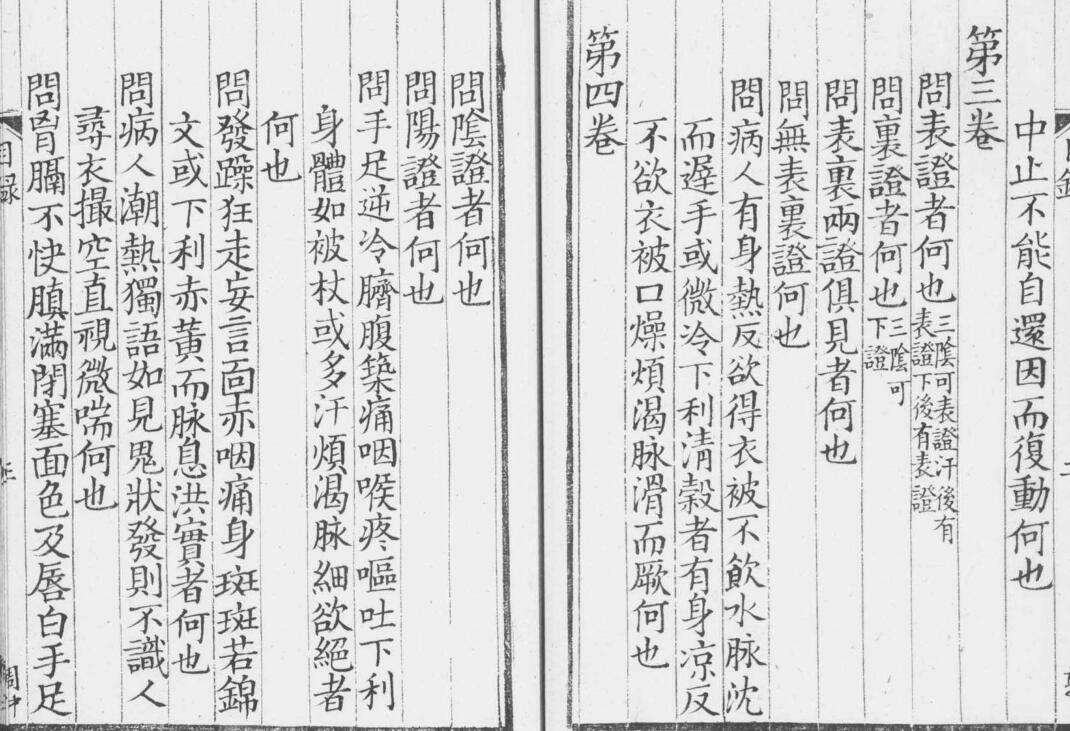 中止不能自還因而復動何也
第三卷
問表證者何也三陰可表證汗後有表證下後有表證
問裏證者何也三陰可下證
問表裏兩證俱見者何也
問無表裏證何也
問病人有身熱反欲得衣被不飲水脉沈
而遲手或微冷下利清穀者有身凉反
不欲衣被口燥煩渴脉滑而厥何也
第四卷
問陰證者何也
問陽證者何也
問手足逆冷臍腹築痛咽喉疼嘔吐下利
身體如被杖或多汗煩渴脉細欲絕者
何也
問發躁狂走妄言面赤咽痛身斑斑若錦
文或下利赤黃而脉息洪實者何也
問病人潮熱獨語如見鬼狀發則不識人
尋衣撮空直視微喘何也
問胷膈不快䐜滿閉塞面色及唇白手足
目録